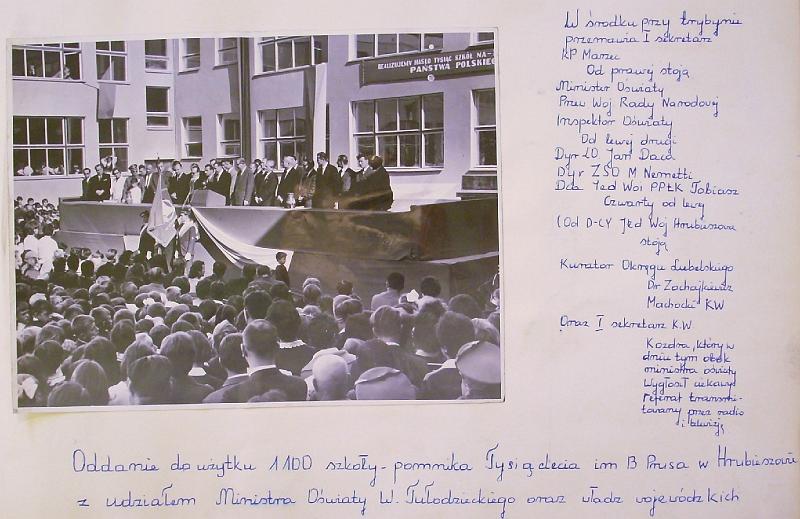 REALIZUJEMY HASŁO TYSIĄC SZKÓŁ NA
PAŃSTWA POLSKIEGO
W środku przy trybynie
przemawia I sekretarz
KP Marzec
Od prawej stoją
Minister Oświaty
Przew Woj Rady Narodowej
Inspektor Oświaty
Od lewej drugi
Dyr LO Jan Daca
Dyr ZSO M Nemetti
Dca Jed Woj PPŁK Tobiasz
Czwarty od lewej
(Od D-CY Jed Woj Hrubieszowa
stoją
Kurator Okręgu Lubelskiego
Dr Zachajkiewicz
Machocki KW
Oraz I sekretarz K.W
Kozdra, który w
dniu tym obok
ministra oświaty
wygłosił ciekawy
referat transmi-
towany przez radio
i telewizję
Oddanie do użytku 1100 szkoły-pomnika Tysiąclecia im B Prusa w Hrubieszowie
z udziałem Ministra Oświaty W. Tułodzieckiego oraz władz wojewódzkich